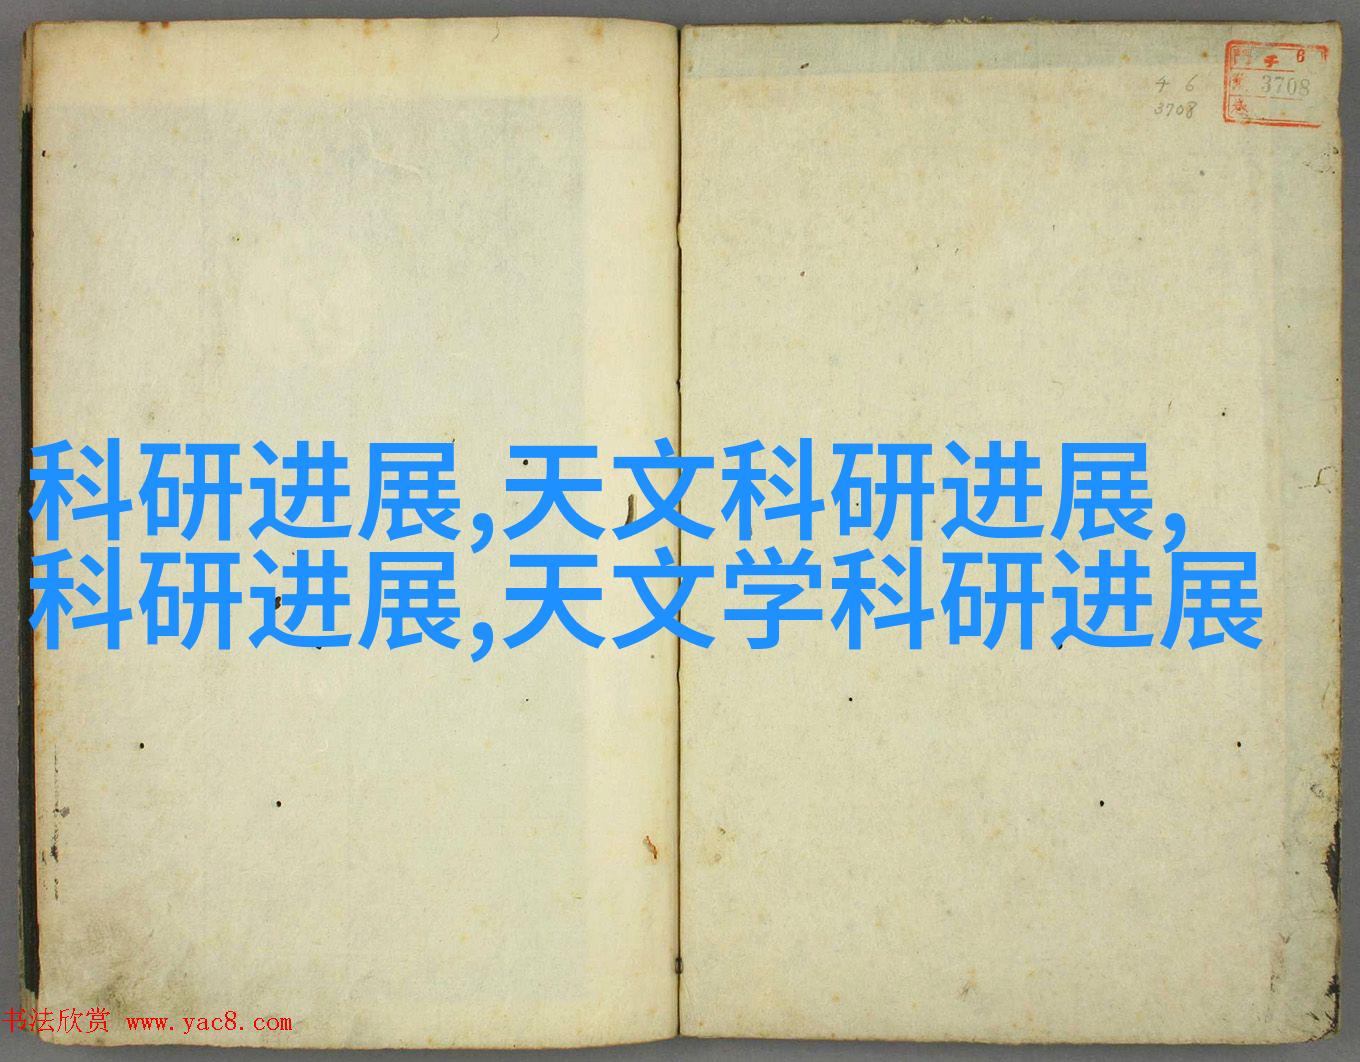 4 6
3708
チ 6
3708
科研进展,天文科研进展,
科研进展,天文学科研进展
书法欣赏 www.yac8.com